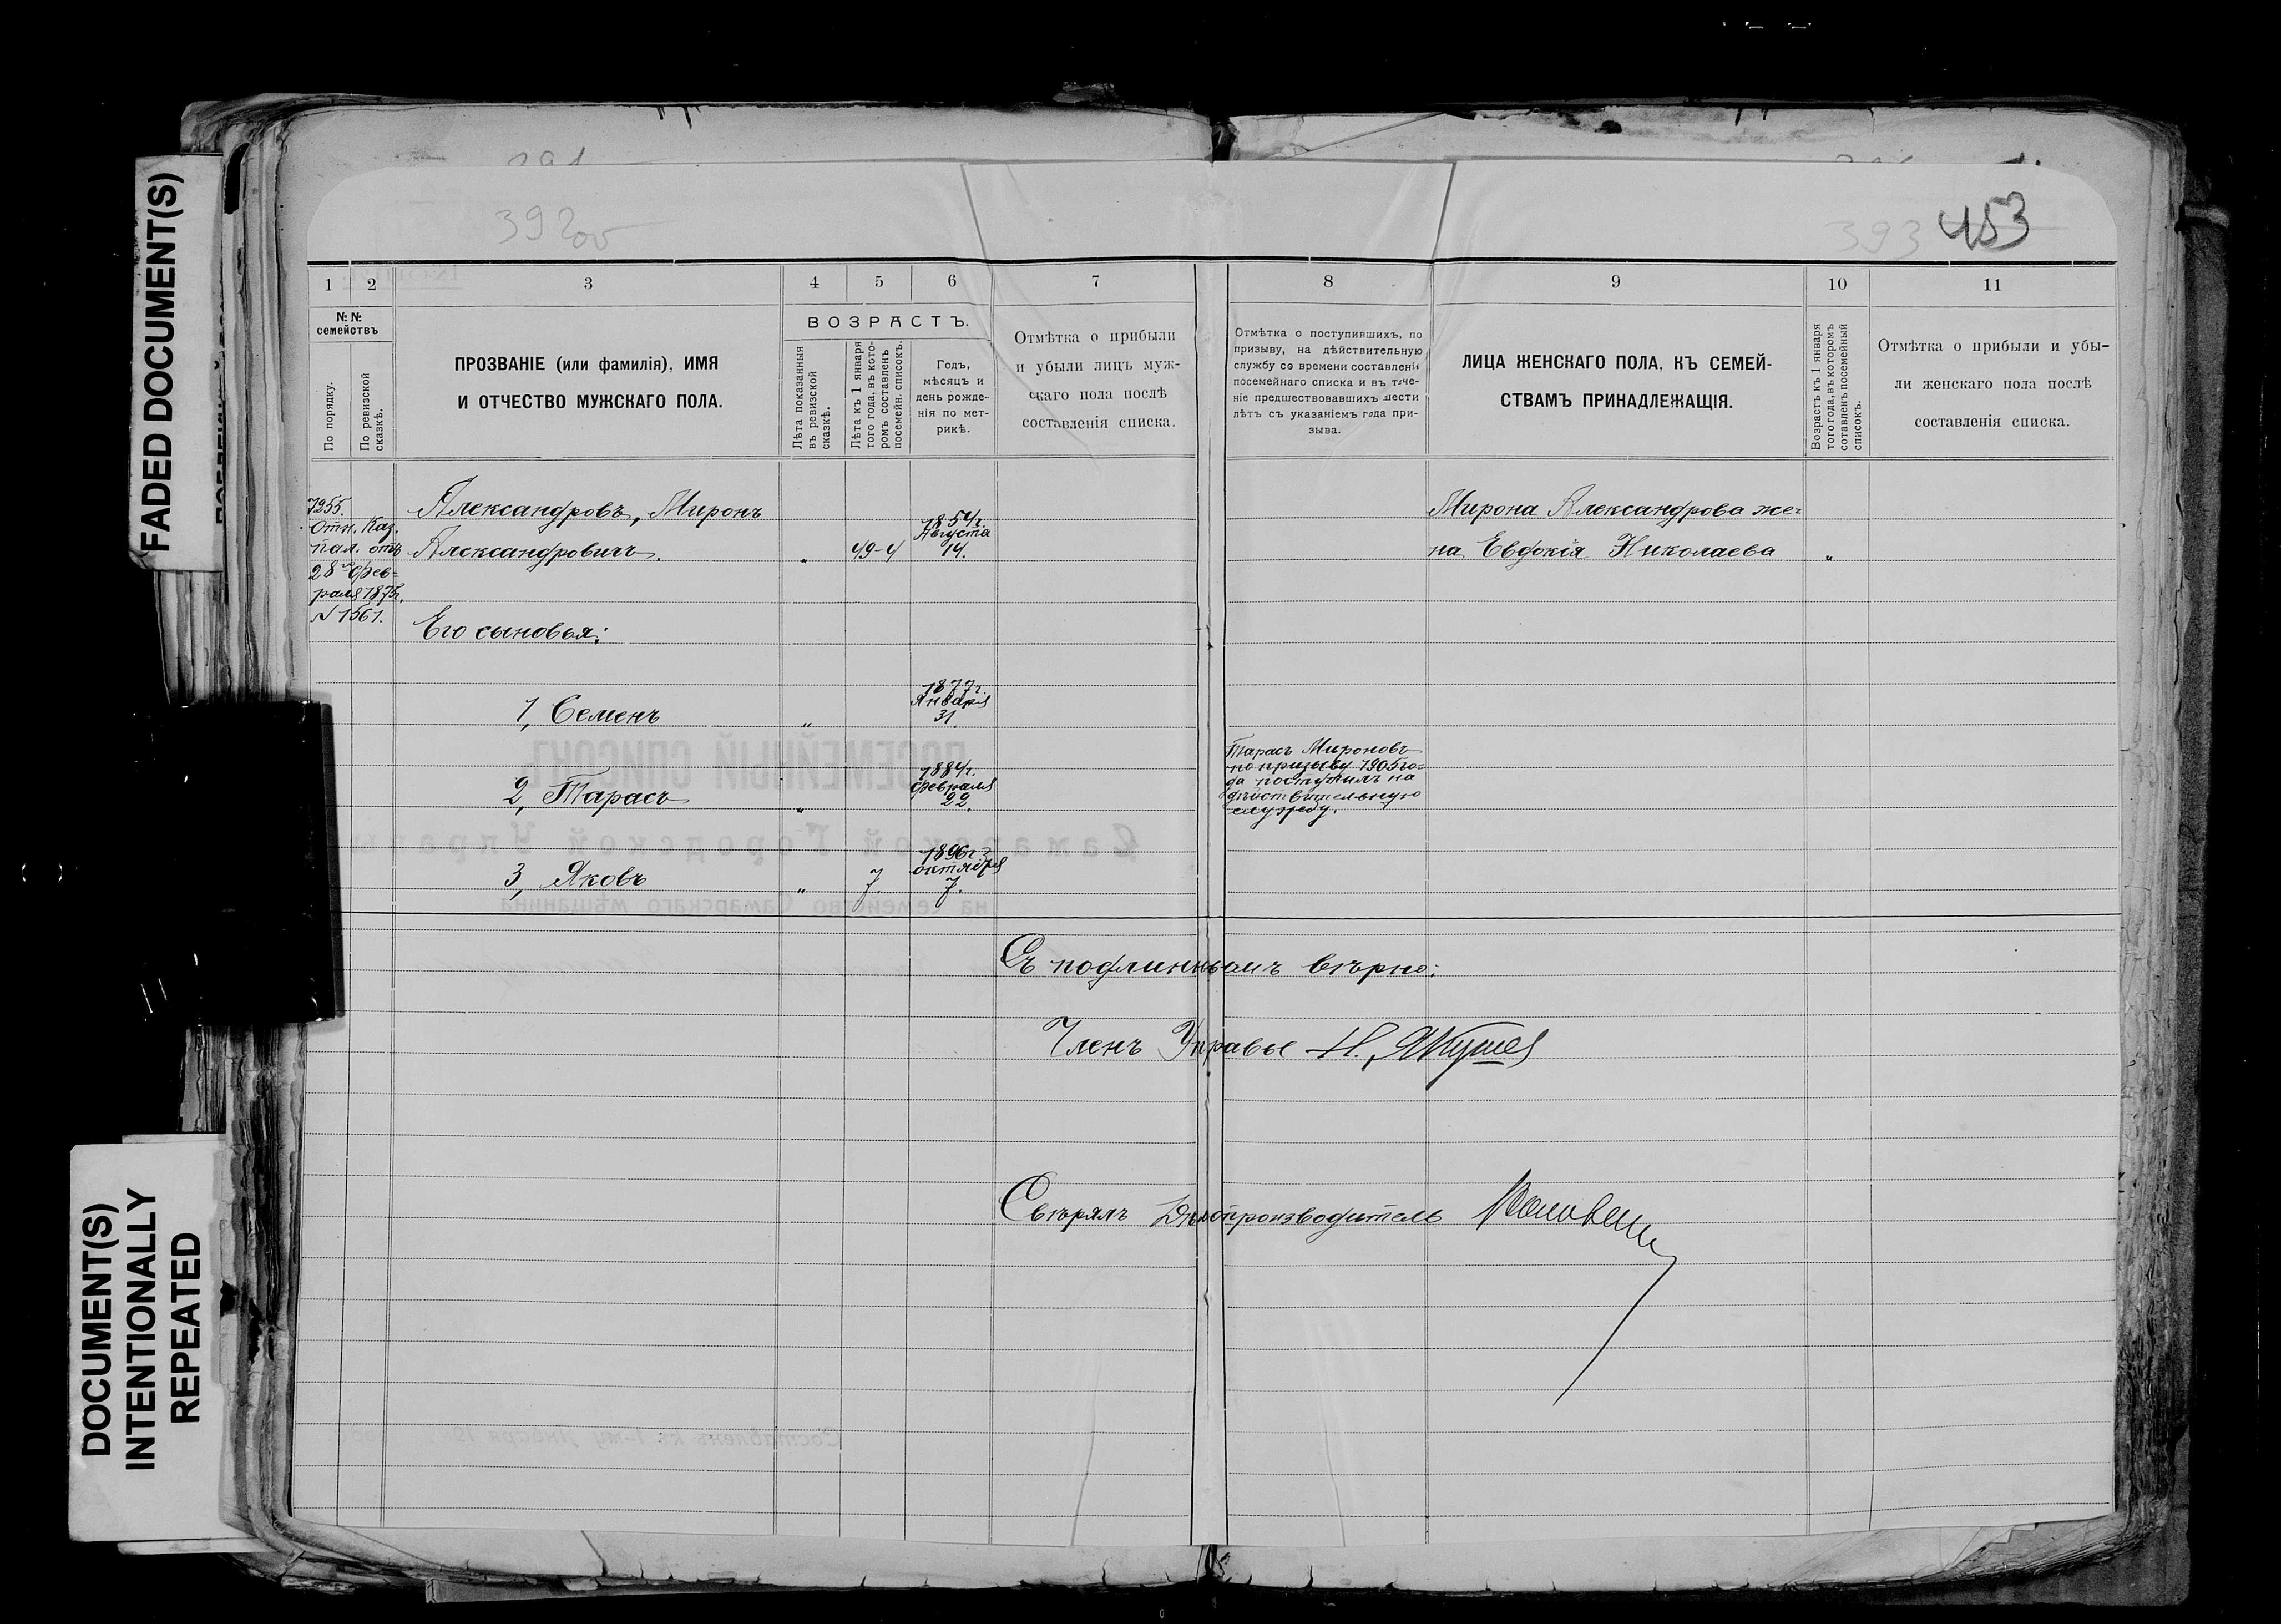 FADED DOCUMENT(S)
DOCUMENT(S)
INTENTIONALLY
REPEATED
392об
393 453
1 2 3 4 5 6 7 8 9 10 11
№№ семействъ
По порядку.
По ревизской сказкѣ.
ПРОЗВАНІЕ (или фамилія), ИМЯ
И ОТЧЕСТВО МУЖСКАГО ПОЛА.
ВОЗРАСТЪ.
Лѣта показанныя
въ ревизской
сказкѣ.
Лѣта къ 1 января
того года, въ кото-
ромъ составленъ
посемейн. списокъ.
Годъ,
мѣсяцъ и
день рожде-
нія по мет-
рикѣ.
Отмѣтка о прибыли
и убыли лицъ муж-
скаго пола послѣ
составленія списка.
Отмѣтка о поступившихъ, по
призыву, на дѣйствительную
службу со времени составленія
посемейнаго списка и въ тече-
ніе предшествовавшихъ шести
лѣтъ съ указаніемъ года при-
зыва.
ЛИЦА ЖЕНСКАГО ПОЛА, КЪ СЕМЕЙ-
СТВАМЪ ПРИНАДЛЕЖАЩІЯ.
Возрастъ къ 1 января
того года, въ которомъ
сотавленъ посемейный
списокъ.
Отмѣтка о прибыли и убы-
ли женскаго пола послѣ
составленія списка.
7255.
Отн. Каз.
пал. отъ
28го фев-
раля 1875г.
№ 1561.
Александровъ, Миронъ
Александровичъ. „ 49-4
1854г.
Августа
14.
Мирона Александрова же-
на Евдокія Николаева „
Его сыновья:
1, Семенъ „
1877г.
Января
31.
2, Тарасъ „
1884г.
февраля
22.
Тарасъ Мироновъ
по призыву 1905 го-
да поступилъ на
дѣйствительную
службу.
3, Яковъ „ 7.
1896г.
октября
7.
Съ подлиннымъ вѣрно:
Членъ Управы Н. Якушев
Свѣрялъ Дѣлопроизводитель
ПОСЕМЕЙНЫЙ СПИСОКЪ
Самарской Городской Управы
на семейство Самарскаго мѣщанина